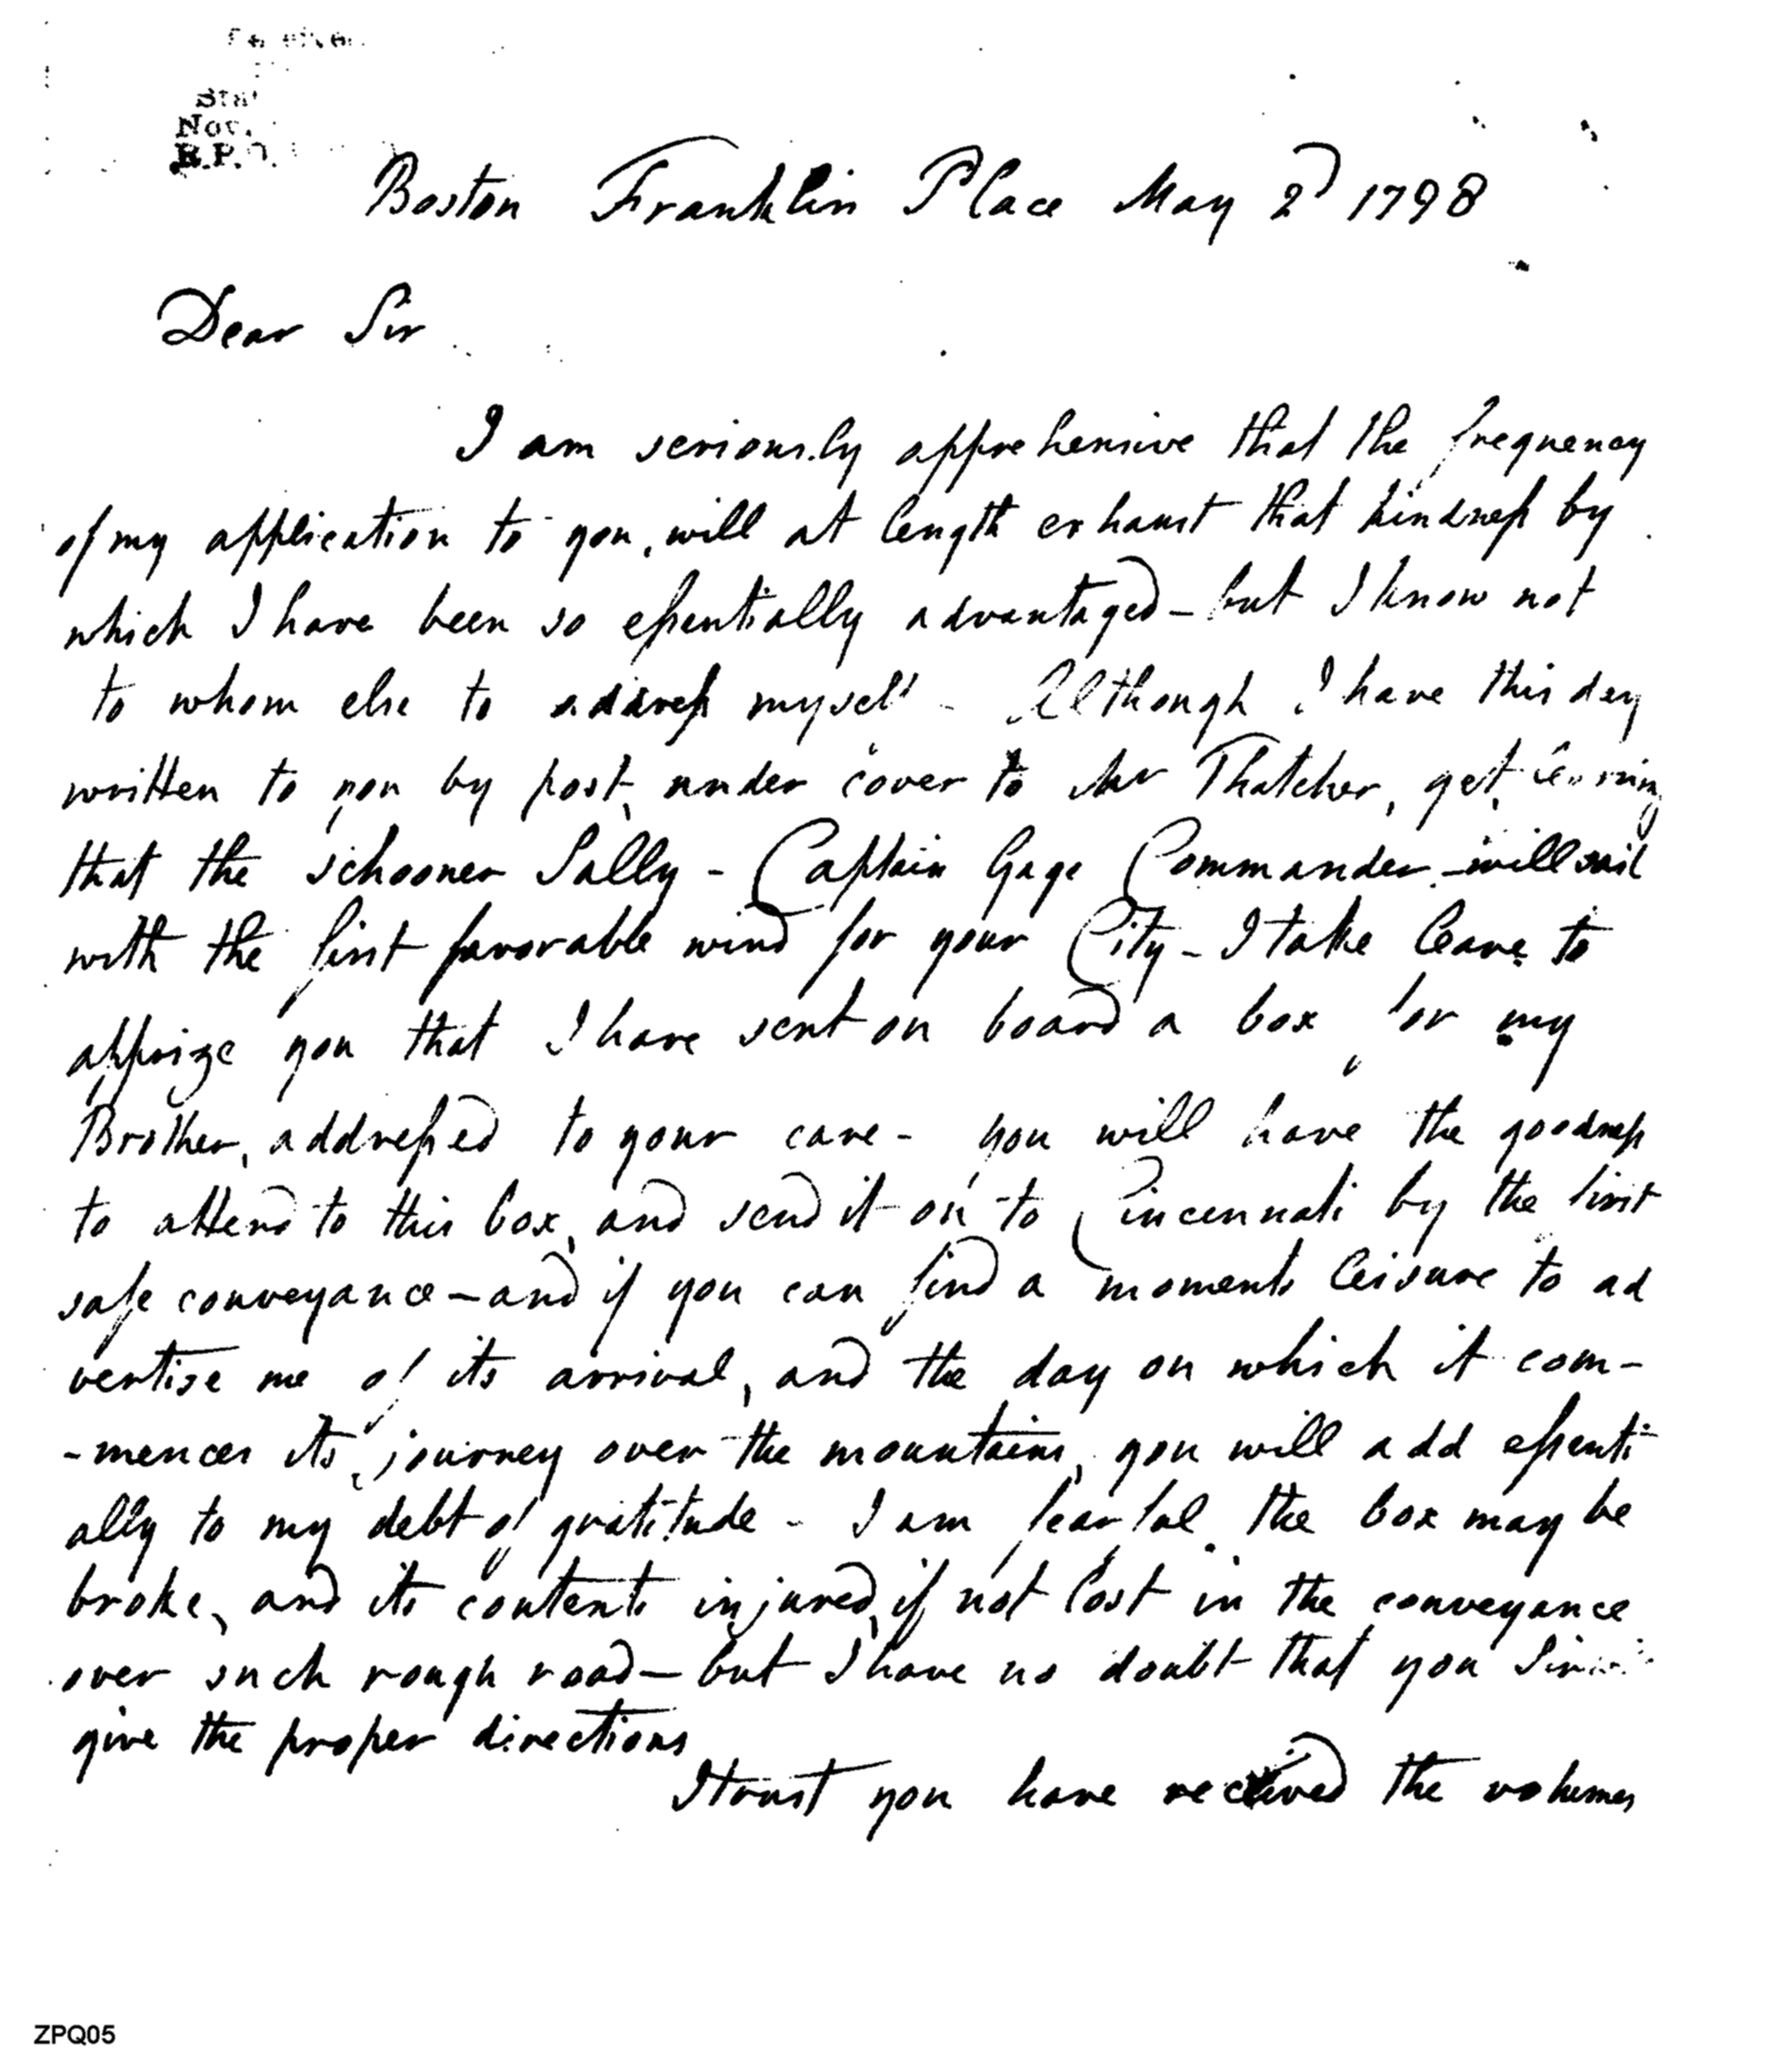 Nov.
Boston Franklin Place May 2d 1798
Dear Sir
I am seriously apprehensive that the frequency
of my application to you, will at length exhaust that kindneſs by
which I have been so eſsentially advantaged – but I know not
to whom else to addreſs myself – Although I have this day
written to you by post, under cover to Mr Thatcher, yet, learning
that the schooner Sally – Captain Gage Commander – will sail
with the first favorable wind for your City – I take leave to
apprize you that I have sent on board a box, for my
Brother, addreſsed to your care – you will have the goodneſs
to attend to this box, and send it on to Cincennati by the first
safe conveyance – and if you can find a moments leisure to ad
vertise me of its arrival, and the day on which it com-
-mences its journey over the mountains, you will add eſsenti
ally to my debt of gratitude – I am fearful the box may be
broke, and its contents injured, if not lost in the conveyance
over such rough road – but I have no doubt that you
give the proper directions
I trust you have received the volumes
ZPQ05